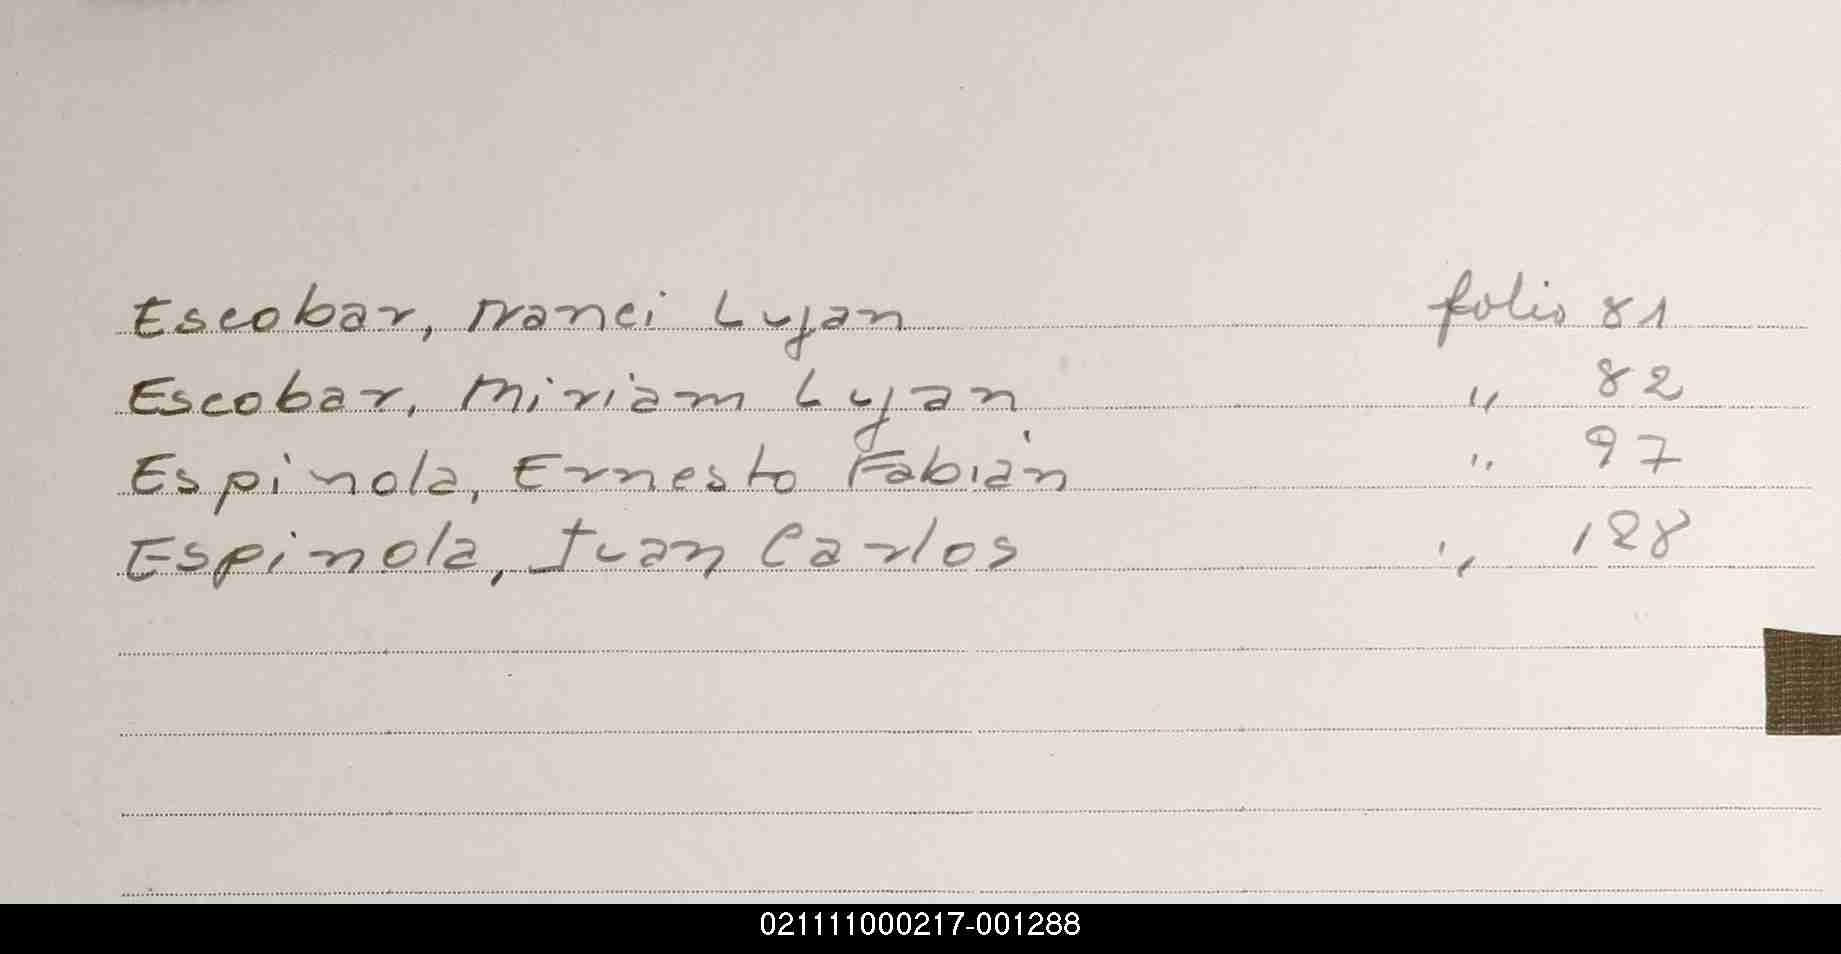 Escobar, Nanci Lujan folio 81
Escobar, Miriam Lujan " 82
Espinola, Ernesto Fabián " 97
Espinola, Juan Carlos " 128
021111000217-001288